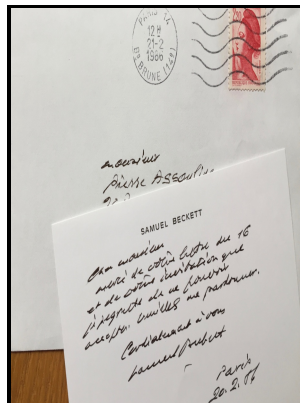 PARIS 14
12H
21-2
1986
Bd BRUNE (14e)
monsieur
Pierre Assouline
SAMUEL BECKETT
Cher monsieur
merci de votre lettre du 16
et de votre invitation que
je regrette de ne pouvoir
accepter. Veuillez me pardonner.
Cordialement à vous
Samuel Beckett
Paris
20.2.86